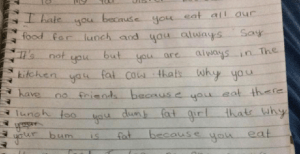 to my fat
I hate you because you eat all our
food for lunch and you always say
It's not you but you are always in The
kitchen you fat cow thats why you
have no friends because you eat there
lunch too you dumb fat girl thats why
your bum is fat because you eat